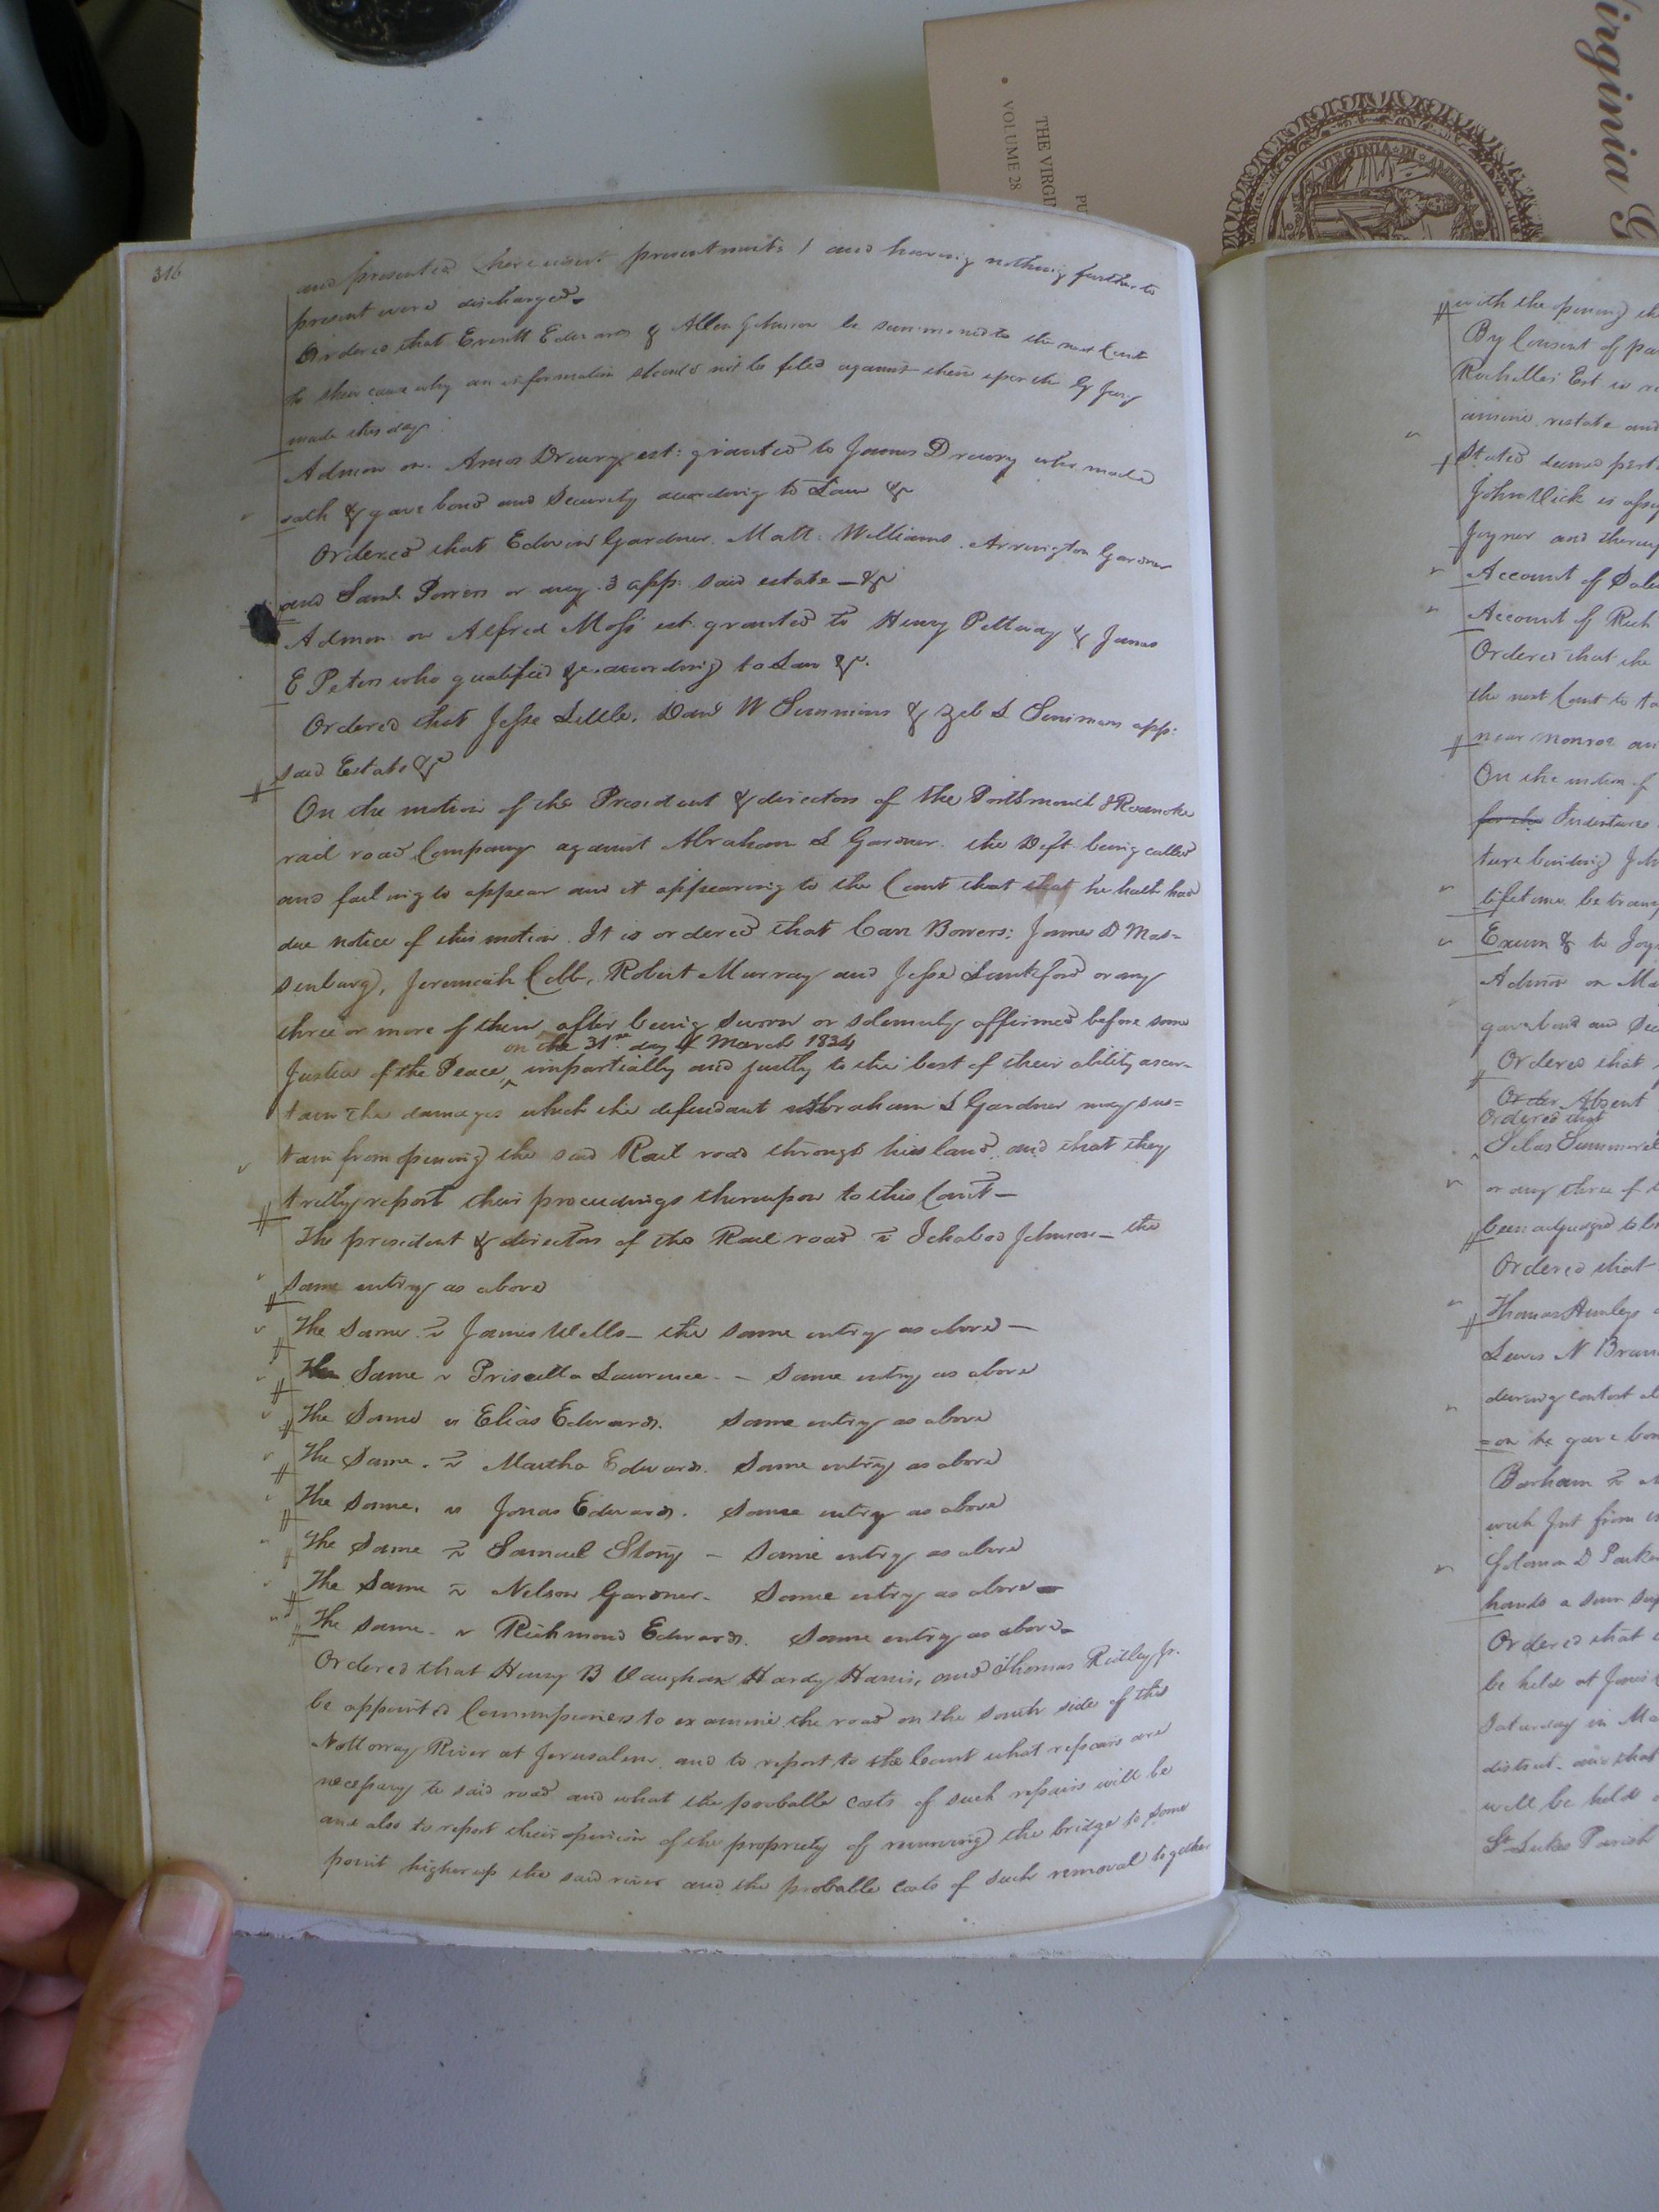 316
and presented (here insert presentments) and having nothing further to
present were discharged.
Ordered that Everitt Edwards & Allen Johnson be summoned to the next Court
to shew cause why an information should not be filed against them upon the G Jury
made this day.
Admon on Amos Drewry est: granted to James Drewry who made
oath & gave bond and Security according to Law &c
Ordered that Edwin Gardner. Matt: Williams. Arrington Gardner
and Saml Powers or any 3 app: said estate — &c
Admon: on Alfred Moss est: granted to Henry Pettway & James
E Peters who qualified &c according to Law &c.
Ordered that Jesse Little, Davd W Simmons & Zeb L Simmons app:
said Estate &c
On the motion of the President & directors of the Portsmouth & Roanoke
rail road Company against Abraham L Gardner. the Deft being called
and failing to appear and it appearing to the Court that that he hath had
due notice of this motion. It is ordered that Carr Bowers: James D Mas=
senburg, Jeremiah Cobb, Robert Murray and Jesse Lankford or any
three or more of them, after being sworn or solemnly affirmed before some
on the 31st day of March 1834
Justice of the Peace, impartially and justly to the best of their ability ascer-
tain the damages which the defendant Abraham L Gardner may sus=
tain from opening the said Rail road through his land, and that they
truly report their proceedings thereupon to this Court —
The president & directors of the Rail road vs Ichabod Johnson — the
same entry as above
The Same vs James Wells — the same entry as above —
The Same vs Priscilla Lawrence. — Same entry as above
The Same vs Elias Edwards. Same entry as above
The Same. vs Martha Edwards. Same entry as above
The Same. vs Jonas Edwards. Same entry as above
The Same vs Samuel Story — Same entry as above
The Same vs Nelson Gardner. Same entry as above
The same. vs Richmond Edwards. Same entry as above
Ordered that Henry B Vaughan Hardy Harris, and Thomas Ridley Jr.
be appointed Commissioners to examine the road on the South side of the
Nottoway River at Jerusalem, and to report to the Court what repairs are
necessary to said road and what the probable costs of such repairs will be
and also to report their opinion of the propriety of removing the bridge to some
point higher up the said river and the probable costs of such removal together
with the opening
By Consent of
Rochelles Est. is
amine restate and
Stated deemed
John Vick is
Joyner and
Account of
Account of Rich
Ordered that the
the next Court to
near Monroe
On the motion of
for the Indenture
ture binding
lifetime, be
Exum & to
Admon on
gave bond and
Ordered that
Order Absent
Ordered that
Silas
or any three of
been adjudged to
Ordered that
Thomas
Lewis N
during contest
=on he gave
Barham vs
with Int from
Solomon D
hands a sum
Ordered that
be held at
Saturday in
district. and that
will be held
St Lukes Parish
irginia G
THE VIRGI
VOLUME 28
PU
VIRGINIA